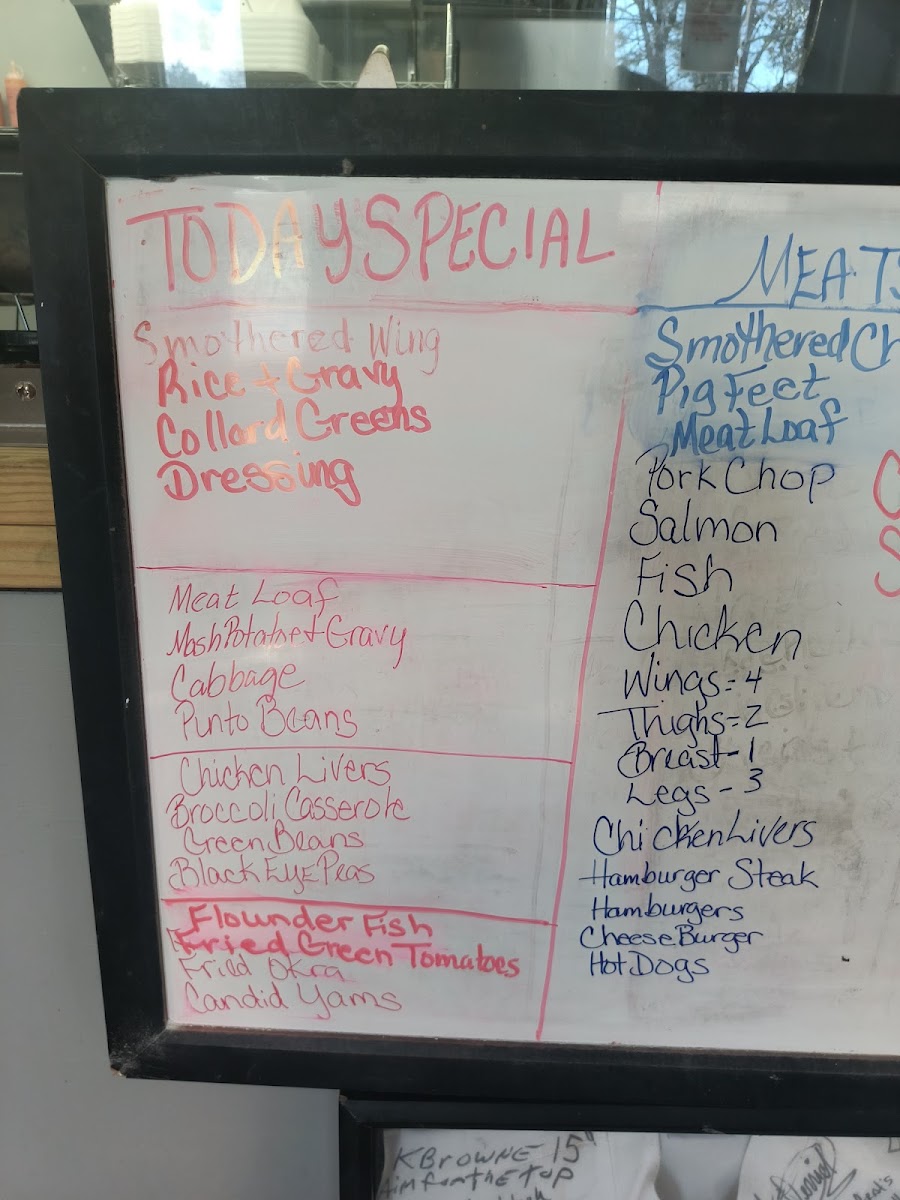 TODAY SPECIAL
Smothered Wing
Rice + Gravy
Collard Greens
Dressing
Meat Loaf
Mash Potatoe + Gravy
Cabbage
Pinto Beans
Chicken Livers
Broccoli Casserole
Green Beans
Black Eye Peas
Flounder Fish
Fried Green Tomatoes
Fried Okra
Candid Yams
MEATS
Smothered Ch
Pig Feet
Meat Loaf
Pork Chop
Salmon
Fish
Chicken
Wings = 4
Thighs = 2
Breast - 1
Legs - 3
Chicken Livers
Hamburger Steak
Hamburgers
Cheese Burger
Hot Dogs
C
S
KBROWNE 15"